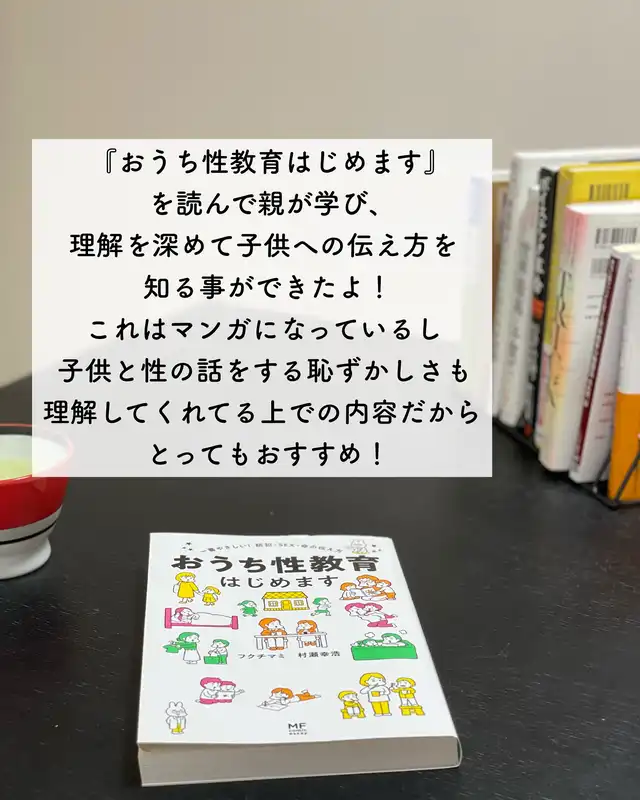 『おうち性教育はじめます』
を読んで親が学び、
理解を深めて子供への伝え方を
知る事ができたよ！
これはマンガになっているし
子供と性の話をする恥ずかしさも
理解してくれてる上での内容だから
とってもおすすめ！
おうち性教育
はじめます
フクチマミ 村瀬幸浩
MF